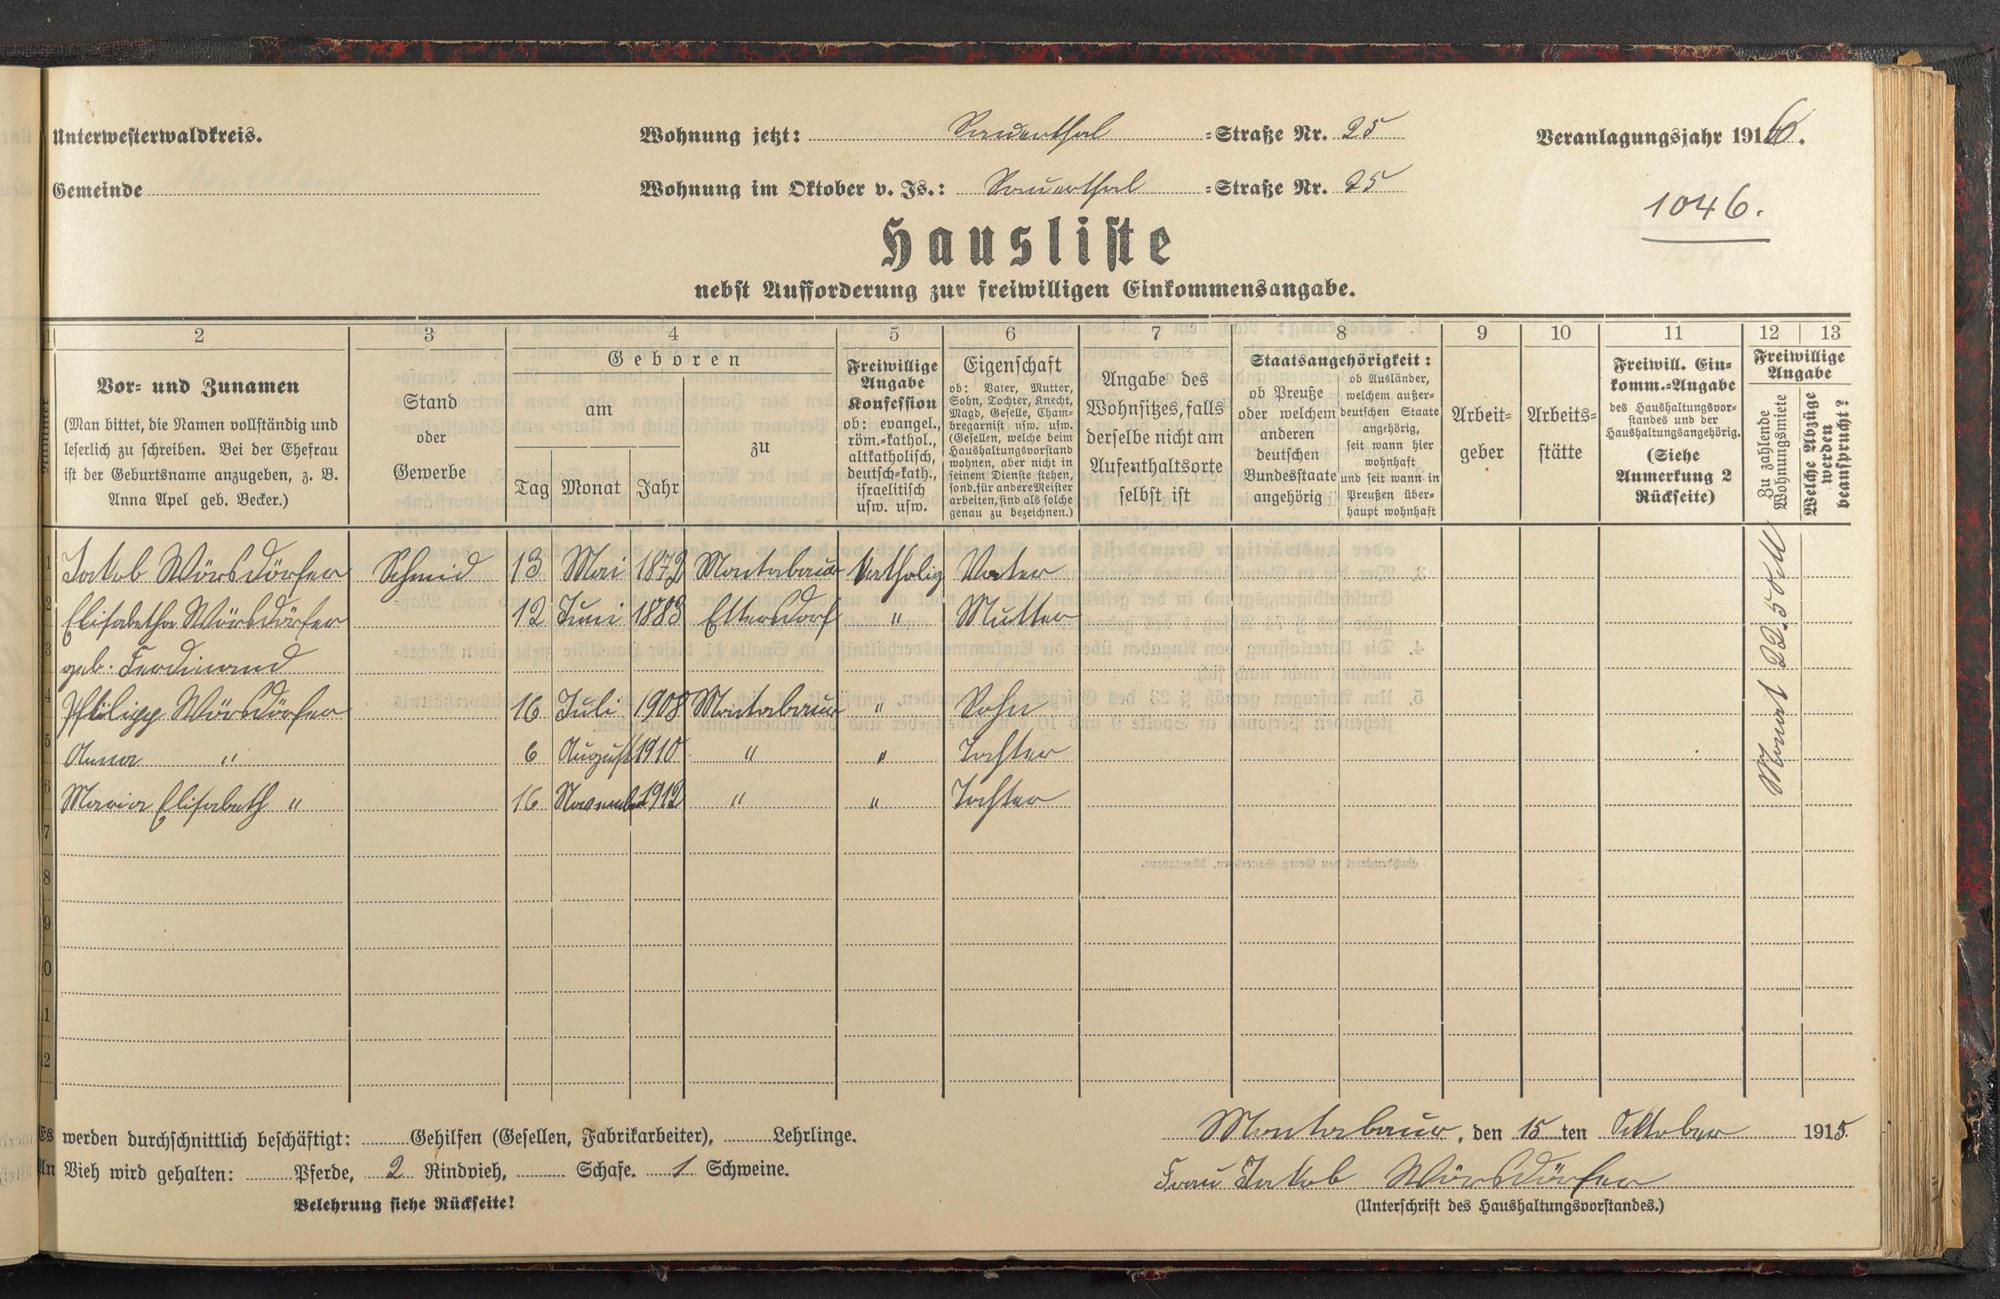 Unterwesterwaldkreis.
Wohnung jetzt: Sauerthal =Straße Nr. 25
Veranlagungsjahr 1916.
Gemeinde
Wohnung im Oktober v. Js.: Sauerthal =Straße Nr. 25
1046.
Hausliste
nebst Aufforderung zur freiwilligen Einkommensangabe.
1 2 3 4 5 6 7 8 9 10 11 12 13
Nummer
Vor- und Zunamen
(Man bittet, die Namen vollständig und
leserlich zu schreiben. Bei der Ehefrau
ist der Geburtsname anzugeben, z. B.
Anna Apel geb. Becker.)
Stand
oder
Gewerbe
Geboren
am
zu
Tag Monat Jahr
Freiwillige
Angabe
Konfession
ob: evangel.,
röm.-kathol.,
altkatholisch,
deutsch-kath.,
israelitisch
usw. usw.
Eigenschaft
ob: Vater, Mutter,
Sohn, Tochter, Knecht,
Magd, Geselle, Cham-
bregarnist usw. usw.
(Gesellen, welche beim
Haushaltungsvorstand
wohnen, aber nicht in
seinem Dienste stehen,
sond. für andere Meister
arbeiten, sind als solche
genau zu bezeichnen.)
Angabe des
Wohnsitzes, falls
derselbe nicht am
Aufenthaltsorte
selbst ist
Staatsangehörigkeit:
ob Preuße
oder welchem
anderen
deutschen
Bundesstaate
angehörig
ob Ausländer,
welchem außer-
deutschen Staate
angehörig,
seit wann hier
wohnhaft
und seit wann in
Preußen über-
haupt wohnhaft
Arbeit-
geber
Arbeits-
stätte
Freiwill. Ein-
komm.-Angabe
des Haushaltungsvor-
standes und der
Haushaltungsangehörig.
(Siehe
Anmerkung 2
Rückseite)
Freiwillige
Angabe
Zu zahlende
Wohnungsmiete
Welche Abzüge
werden
beansprucht?
1 Jakob Wörsdörfer Schmid 13 Mai 1872 Montabaur Katholig Vater
2 Elisabetha Wörsdörfer 12 Juni 1883 Ettersdorf " Mutter
3 geb. Ferdinand
4 Philipp Wörsdörfer 16 Juli 1908 Montabaur " Sohn
5 Anna " 6 August 1910 " " Tochter
6 Maria Elisabeth " 16 November 1912 " " Tochter
Monat 22.50 M
7
8
9
10
11
12
Es werden durchschnittlich beschäftigt: Gehilfen (Gesellen, Fabrikarbeiter), Lehrlinge.
An Vieh wird gehalten: Pferde, 2 Rindvieh, Schafe. 1 Schweine.
Belehrung siehe Rückseite!
Montabaur, den 15 ten Oktober 1915
Frau Jakob Wörsdörfer
(Unterschrift des Haushaltungsvorstandes.)